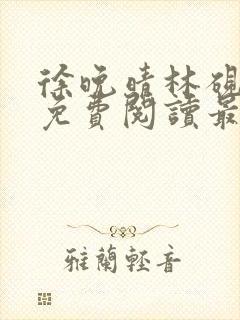 徐晚晴林硯
免費閱讀最
雅蘭輕音